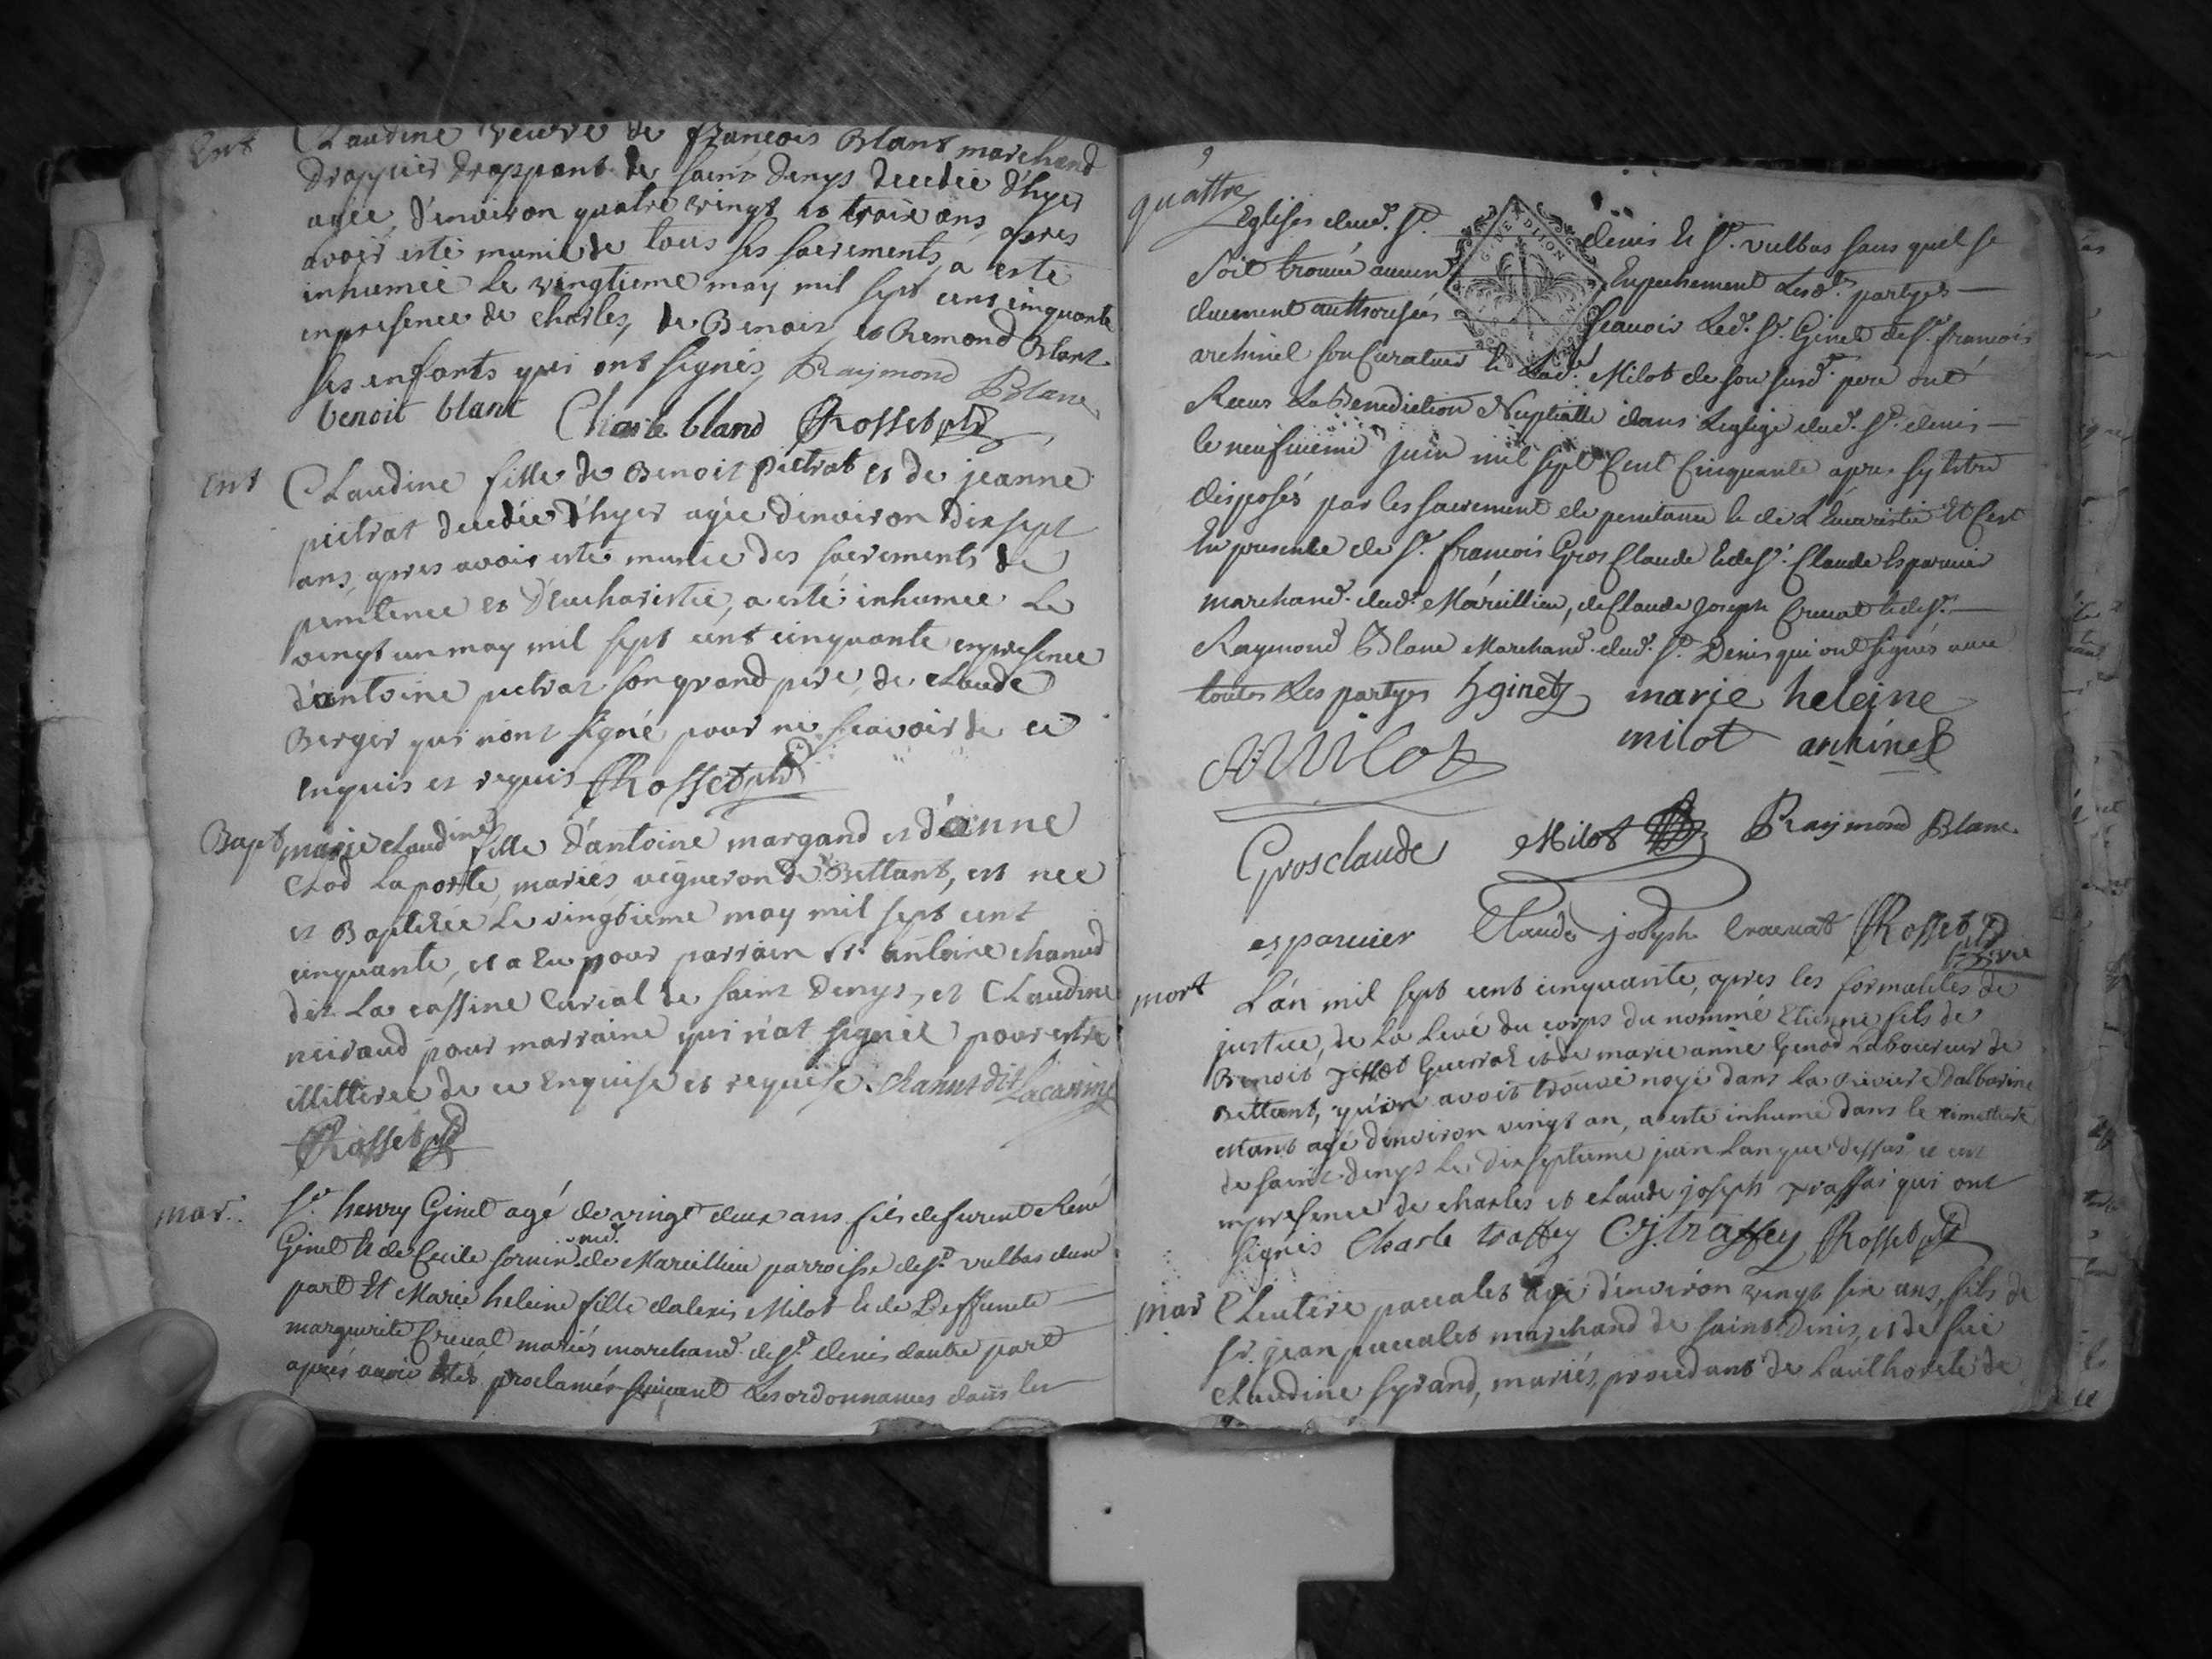 Ent Claudine veuve de françois Blant marchand
drappier drappant de saint denys decedée d'hyer
agée d'environ quatre vingt et trois ans apres
avoir esté munie de tous ses sacrements, a esté
inhumée le vingtieme may mil sept cent cinquante
enpresence de charles, de Benoit et Remond Blant
ses enfants qui ont signés Raymond Blanc
benoit blant Charle bland Rosset ptr
Ent Claudine fille de Benoit pictrat et de jeanne
pictrat decedée d'hyer agée d'environ dix sept
ans, apres avoir esté munie des sacrements de
penitence et d'eucharistie, a esté inhumée le
vingt un may mil sept cent cinquante enpresence
d'antoine pictrat son grand pere, de claude
Berger qui n'ont signé pour ne sçavoir de ce
enquis et requis Rosset ptr
Bapt marie claudine fille d'antoine margand et d'anne
clod laporte, mariés vigneron de Bettant, est née
et Baptisée le vingtieme may mil sept cent
cinquante, et a eu pour parrain sr. antoine chanud
dit la cassine curial de saint denys, et claudine
neiraud pour marraine qui n'at signée pour estre
illitterée de ce enquise et requise. chanut dit Lacassine
Rosset ptr
mar. Sr. henry Ginet agé de vingt deux ans fils defeu rené
Ginet et de Cecile sornin de Marcillieu parroisse de st. vulbas dune
part Et Marie heleine fille dalexis Milot et de Deffuncte
marguerite Cruat mariés marchand de st. denis dautre part
aprés avoir étés proclamés suivant les ordonnances dans les
quattre
Eglises dud. st. denis et st. vulbas sans quil se
soit trouvé aucun Empechement lesd. partyes
duement authorisées sçavoir led. sr. Ginet de sr. francois
archinel son curateur et lad. Milot de son susd. pere ont
Receus la Benediction Nuptialle dans leglize dud. st. denis
le neufvieme juin mil sept Cent Cinquante apres sy etre
disposés par les sacrement de penitance et de l'eucaristie Et C'est
En presence de sr. francois Gros Claude et de sr. Claude Esparcier
marchand. dud. Marcillieu, de Claude Joseph Cruat et de sr.
Raymond Blanc Marchand. dud. st. Denis qui ont signés avec
toutes les partyes hginet marie heleine
milot archinel
A Milot
Grosclaude Milot Raymond Blanc
esparcier Claude joseph Rosset ptr
mort L'an mil sept cent cinquante, apres les formalités de
justice, de la levé du corps du nommé Etienne fils de
Benoit Guerrat et de marie anne Genod laboureur de
Bettant, qu'on avoit trouvé noyé dans la riviere dalbarine
estant agé denviron vingt an, a esté inhumé dans le cimettiere
de saint denys le dix septieme juin l'an que dessus et ce
enpresence de charles et claude joseph traffai qui ont
signés Charle traffey C.j. traffey Rosset ptr
mar Eleutere paccalet agé d'environ vingt six ans, fils de
sr. jean paccalet marchand de saint Denis, et de feüe
claudine syrand, mariés, procedant de l'authorité de